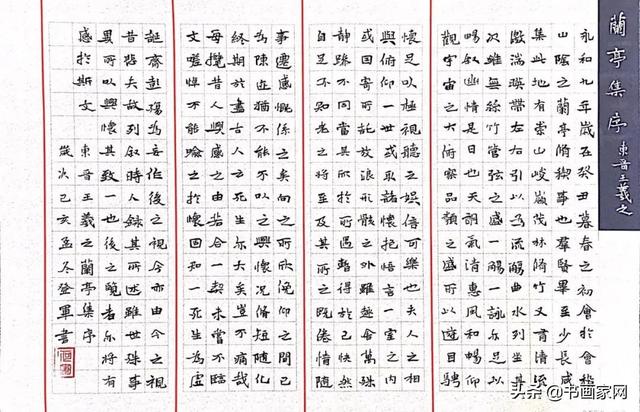 蘭亭集序 東晉王羲之
永和九年歲在癸丑暮春之初會於會稽
山陰之蘭亭脩稧事也羣賢畢至少長咸
集此地有崇山峻嶺茂林脩竹又有清流
激湍暎帶左右引以為流觴曲水列坐其
次雖無絲竹管弦之盛一觴一詠亦足以
暢叙幽情是日也天朗氣清惠風和暢仰
觀宇宙之大俯察品類之盛所以遊目騁
懷足以極視聽之娛信可樂也夫人之相
與俯仰一世或取諸懷抱悟言一室之內
或因寄所託放浪形骸之外雖趣舍萬殊
靜躁不同當其欣於所遇暫得於己快然
自足不知老之將至及其所之既倦情隨
事遷感慨係之矣向之所欣俛仰之間已
為陳迹猶不能不以之興懷況脩短隨化
終期於盡古人云死生亦大矣豈不痛哉
每攬昔人興感之由若合一契未嘗不臨
文嗟悼不能喻之於懷固知一死生為虛
誕齊彭殤為妄作後之視今亦由今之視
昔悲夫故列叙時人錄其所述雖世殊事
異所以興懷其致一也後之覽者亦將有
感於斯文
東晉王羲之蘭亭集序
歲次己亥孟冬登軍書
头条@书画家网